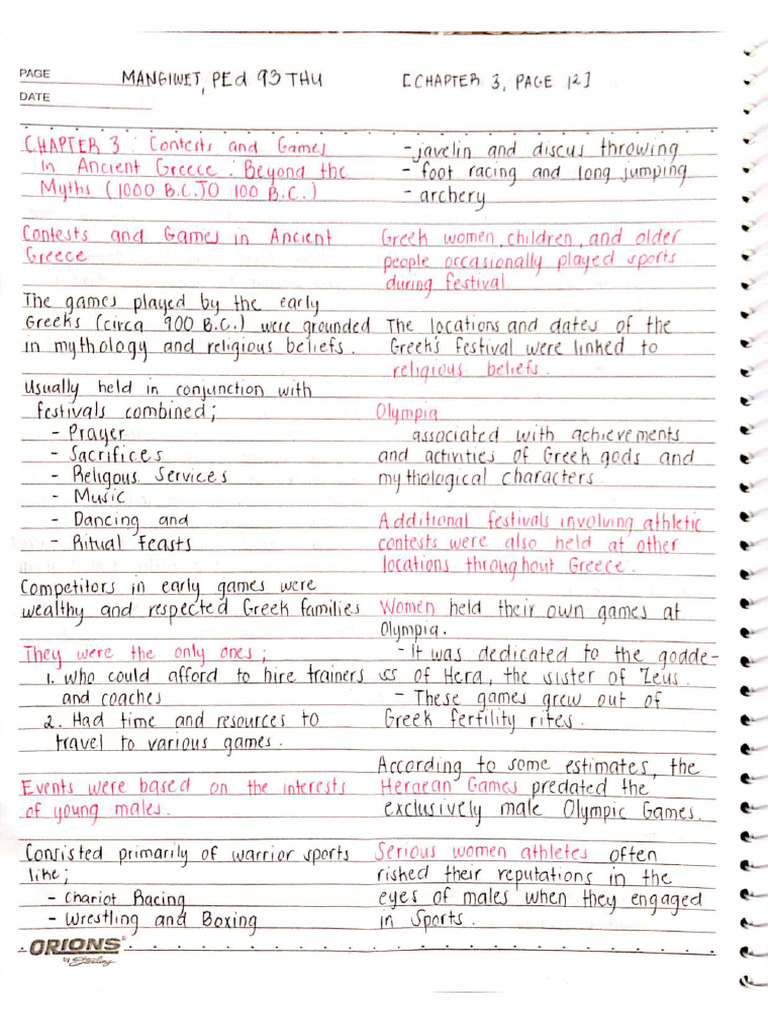 PAGE
DATE
MANGIWET, PEd 93 THU
[CHAPTER 3, PAGE 12]
CHAPTER 3 : Contests and Games
in Ancient Greece : Beyond the
Myths (1000 B.C. TO 100 B.C.)
Contests and Games in Ancient
Greece
The games played by the early
Greeks (circa 900 B.C.) were grounded
in mythology and religious beliefs.
Usually held in conjunction with
festivals combined;
- Prayer
- Sacrifices
- Religous Services
- Music
- Dancing and
- Ritual Feasts
Competitors in early games were
wealthy and respected Greek families
They were the only ones;
1. Who could afford to hire trainers
and coaches
2. Had time and resources to
travel to various games.
Events were based on the interests
of young males.
Consisted primarily of warrior sports
like;
- Chariot Racing
- Wrestling and Boxing
- javelin and discus throwing
- foot racing and long jumping
- archery
Greek women, children, and older
people occasionally played sports
during festival
The locations and dates of the
Greek's festival were linked to
religious beliefs.
Olympia
associated with achievements
and activities of Greek gods and
mythological characters
Additional festivals involving athletic
contests were also held at other
locations throughout Greece.
Women held their own games at
Olympia.
- It was dedicated to the godde-
ss of Hera, the sister of Zeus.
- These games grew out of
Greek fertility rites.
According to some estimates, the
Heraean Games predated the
exclusively male Olympic Games.
Serious women athletes often
rished their reputations in the
eyes of males when they engaged
in Sports.
ORIONS
by Sterling